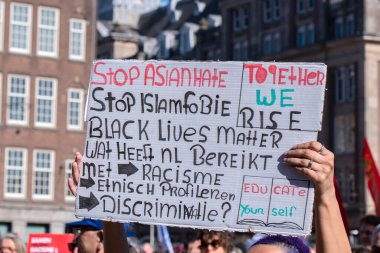 STOP ASIAN HATE
TOGETHER
WE
RISE
STOP ISLAMFOBIE
BLACK LIVES MATTER
WAT HEEFT NL BEREIKT
MET → RACISME
→ ETNISCH PROFILEREN
→ DISCRIMINATIE?
EDUCATE
Your self